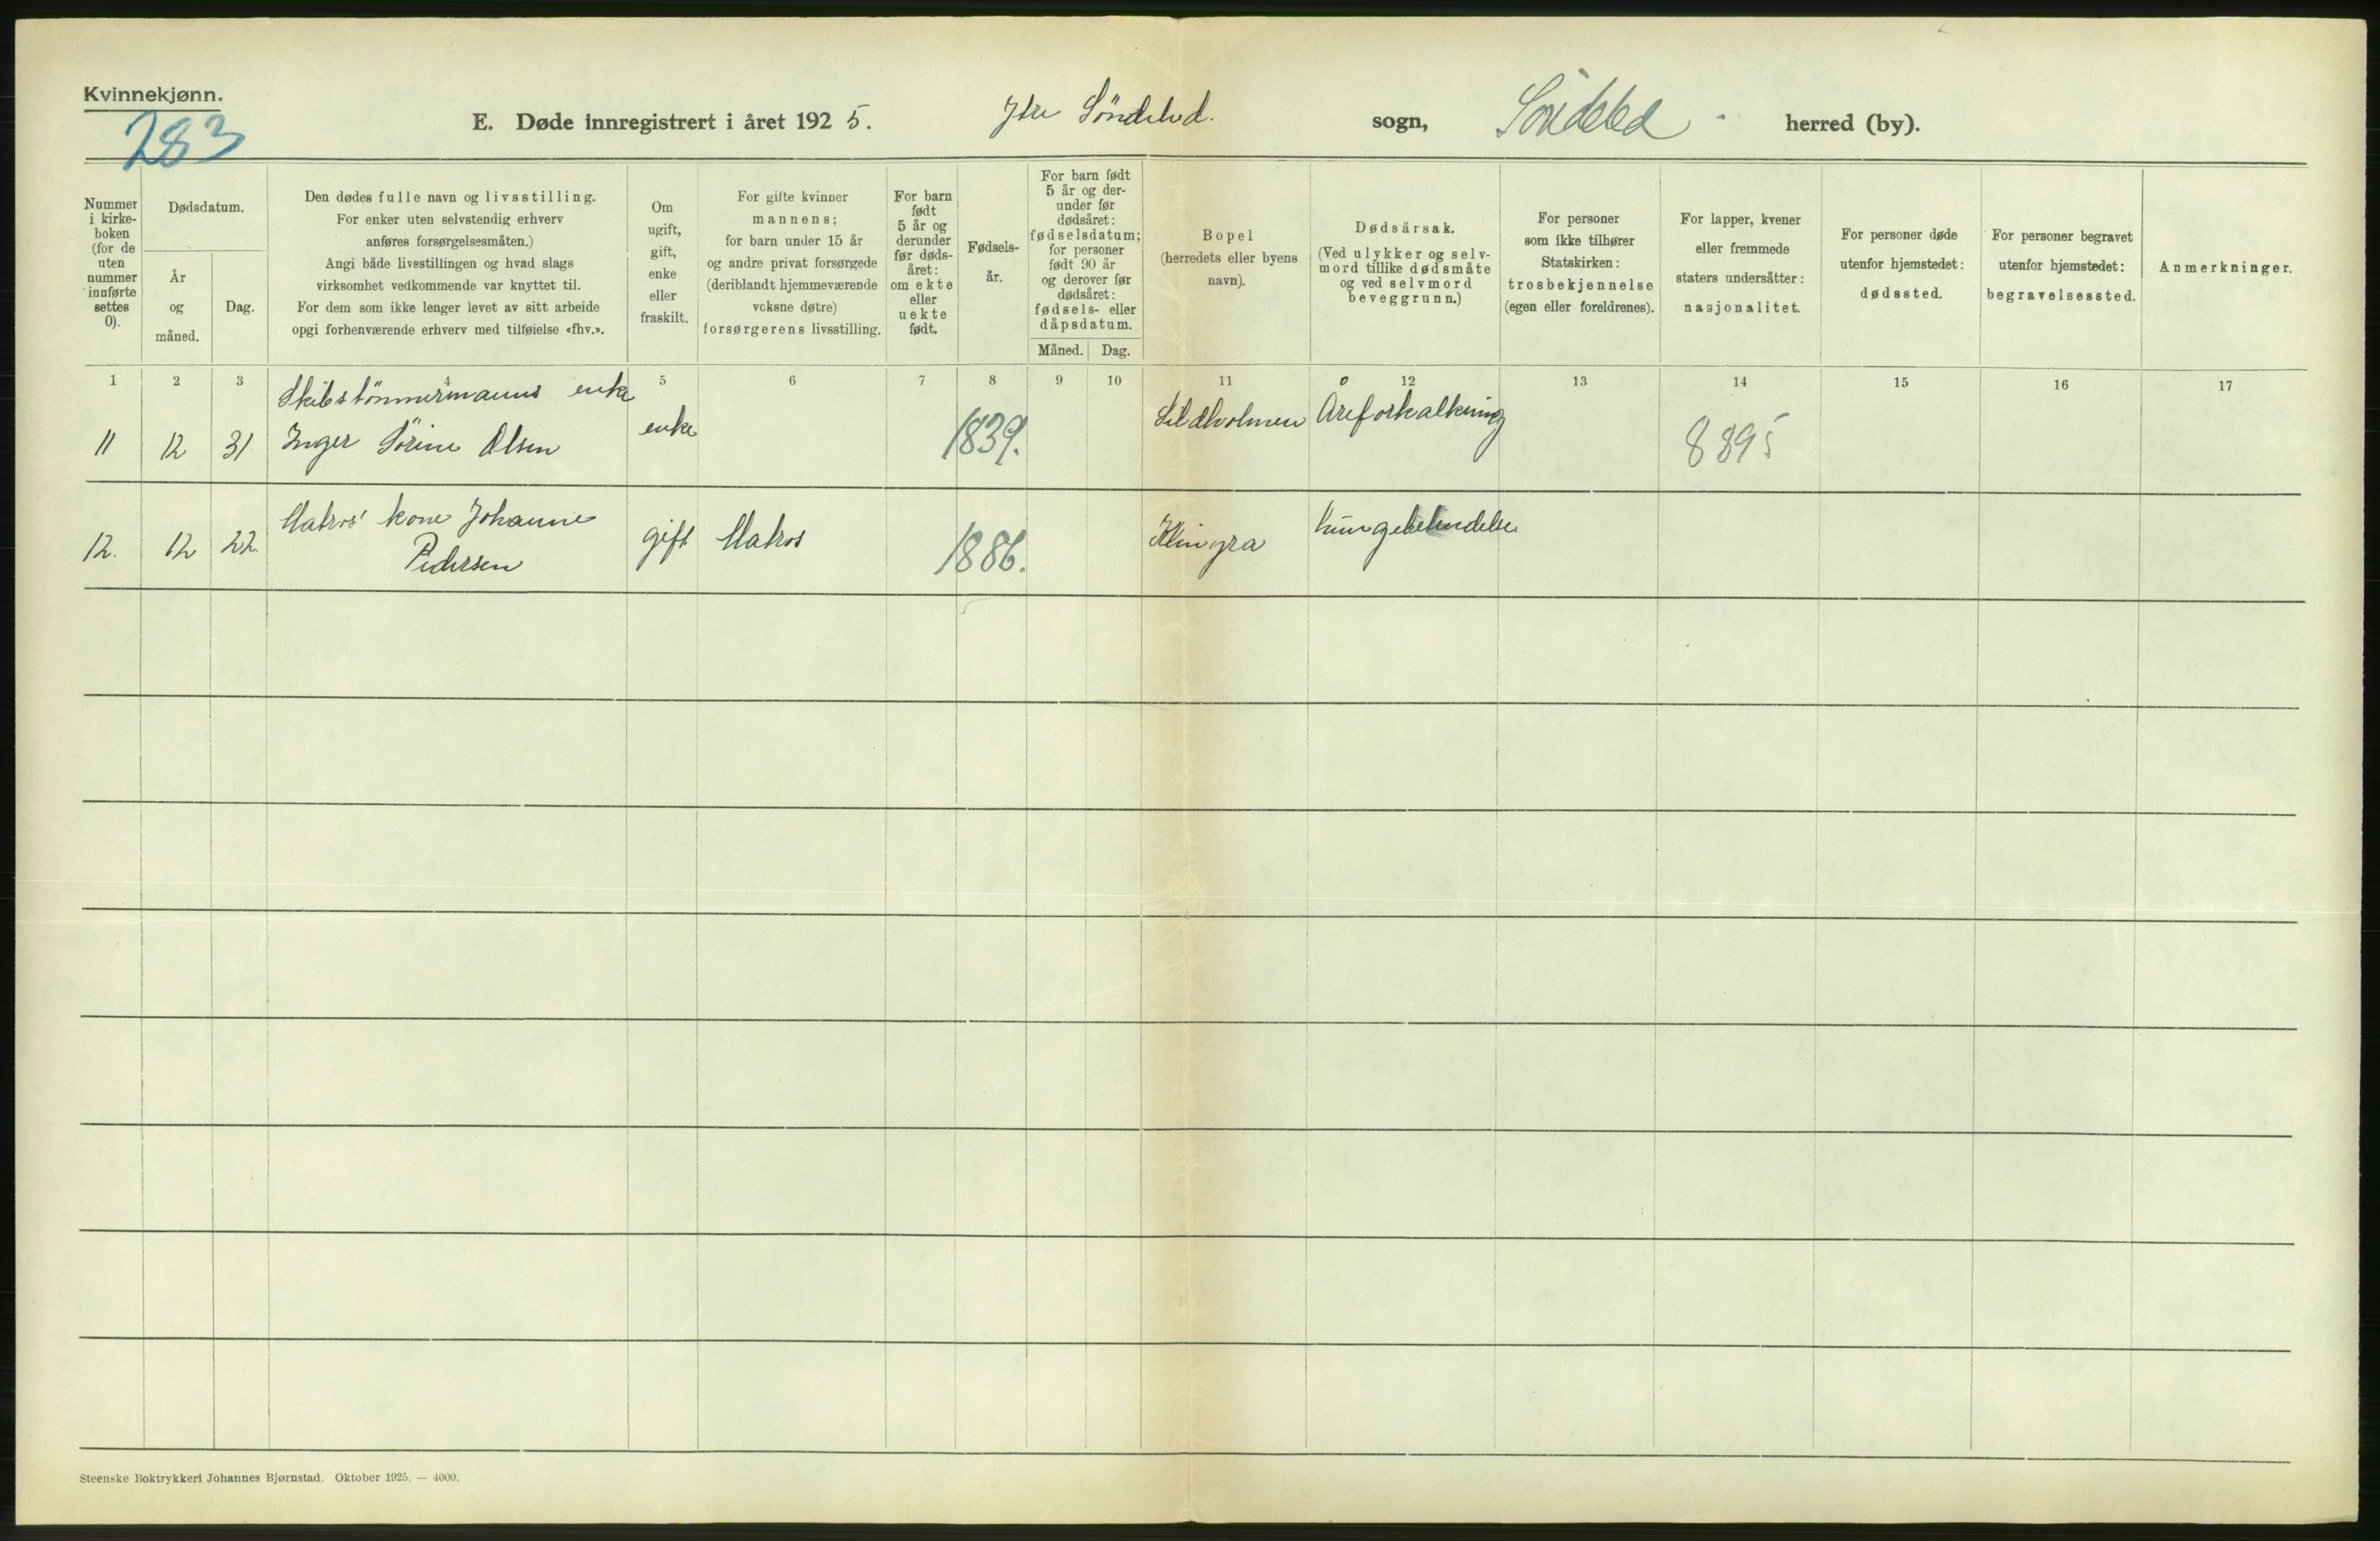 Kvinnekjønn.
283
E. Døde innregistrert i året 1925. Ytre Søndeled. sogn, Søndeled herred (by).
Nummer i kirke- boken (for de uten nummer innførte settes 0).
Dødsdatum.
År og måned.
Dag.
Den dødes fulle navn og livsstilling.
For enker uten selvstendig erhverv
anføres forsørgelsesmåten.)
Angi både livsstillingen og hvad slags
virksomhet vedkommende var knyttet til.
For dem som ikke lenger levet av sitt arbeide
opgi forhenværende erhverv med tilføielse «fhv.».
Om
ugift,
gift,
enke
eller
fraskilt.
For gifte kvinner
mannens;
for barn under 15 år
og andre privat forsørgede
(deriblandt hjemmeværende
voksne døtre)
forsørgerens livsstilling.
For barn
født
5 år og
derunder
før døds-
året:
om ekte
eller
uekte
født.
Fødsels-
år.
For barn født
5 år og der-
under før
dødsåret:
fødselsdatum;
for personer
født 90 år
og derover før
dødsåret:
fødsels- eller
dåpsdatum.
Måned. Dag.
Bopel
(herredets eller byens
navn).
Dødsårsak.
(Ved ulykker og selv-
mord tillike dødsmåte
og ved selvmord
beveggrunn.)
For personer
som ikke tilhører
Statskirken:
trosbekjennelse
(egen eller foreldrenes).
For lapper, kvener
eller fremmede
staters undersåtter:
nasjonalitet.
For personer døde
utenfor hjemstedet:
dødssted.
For personer begravet
utenfor hjemstedet:
begravelsessted.
Anmerkninger.
1 2 3 4 5 6 7 8 9 10 11 12 13 14 15 16 17
Skibstömmermanns enke
11 12 31 Inger Sörine Olsen enke 1839. Sildholmen Åreforkalkning 8895
Matros' kone Johanne
12. 12 22. Pedersen gift Matros 1886. Klingra lungebetendelse
Steenske Boktrykkeri Johannes Bjørnstad. Oktober 1925. — 4000.